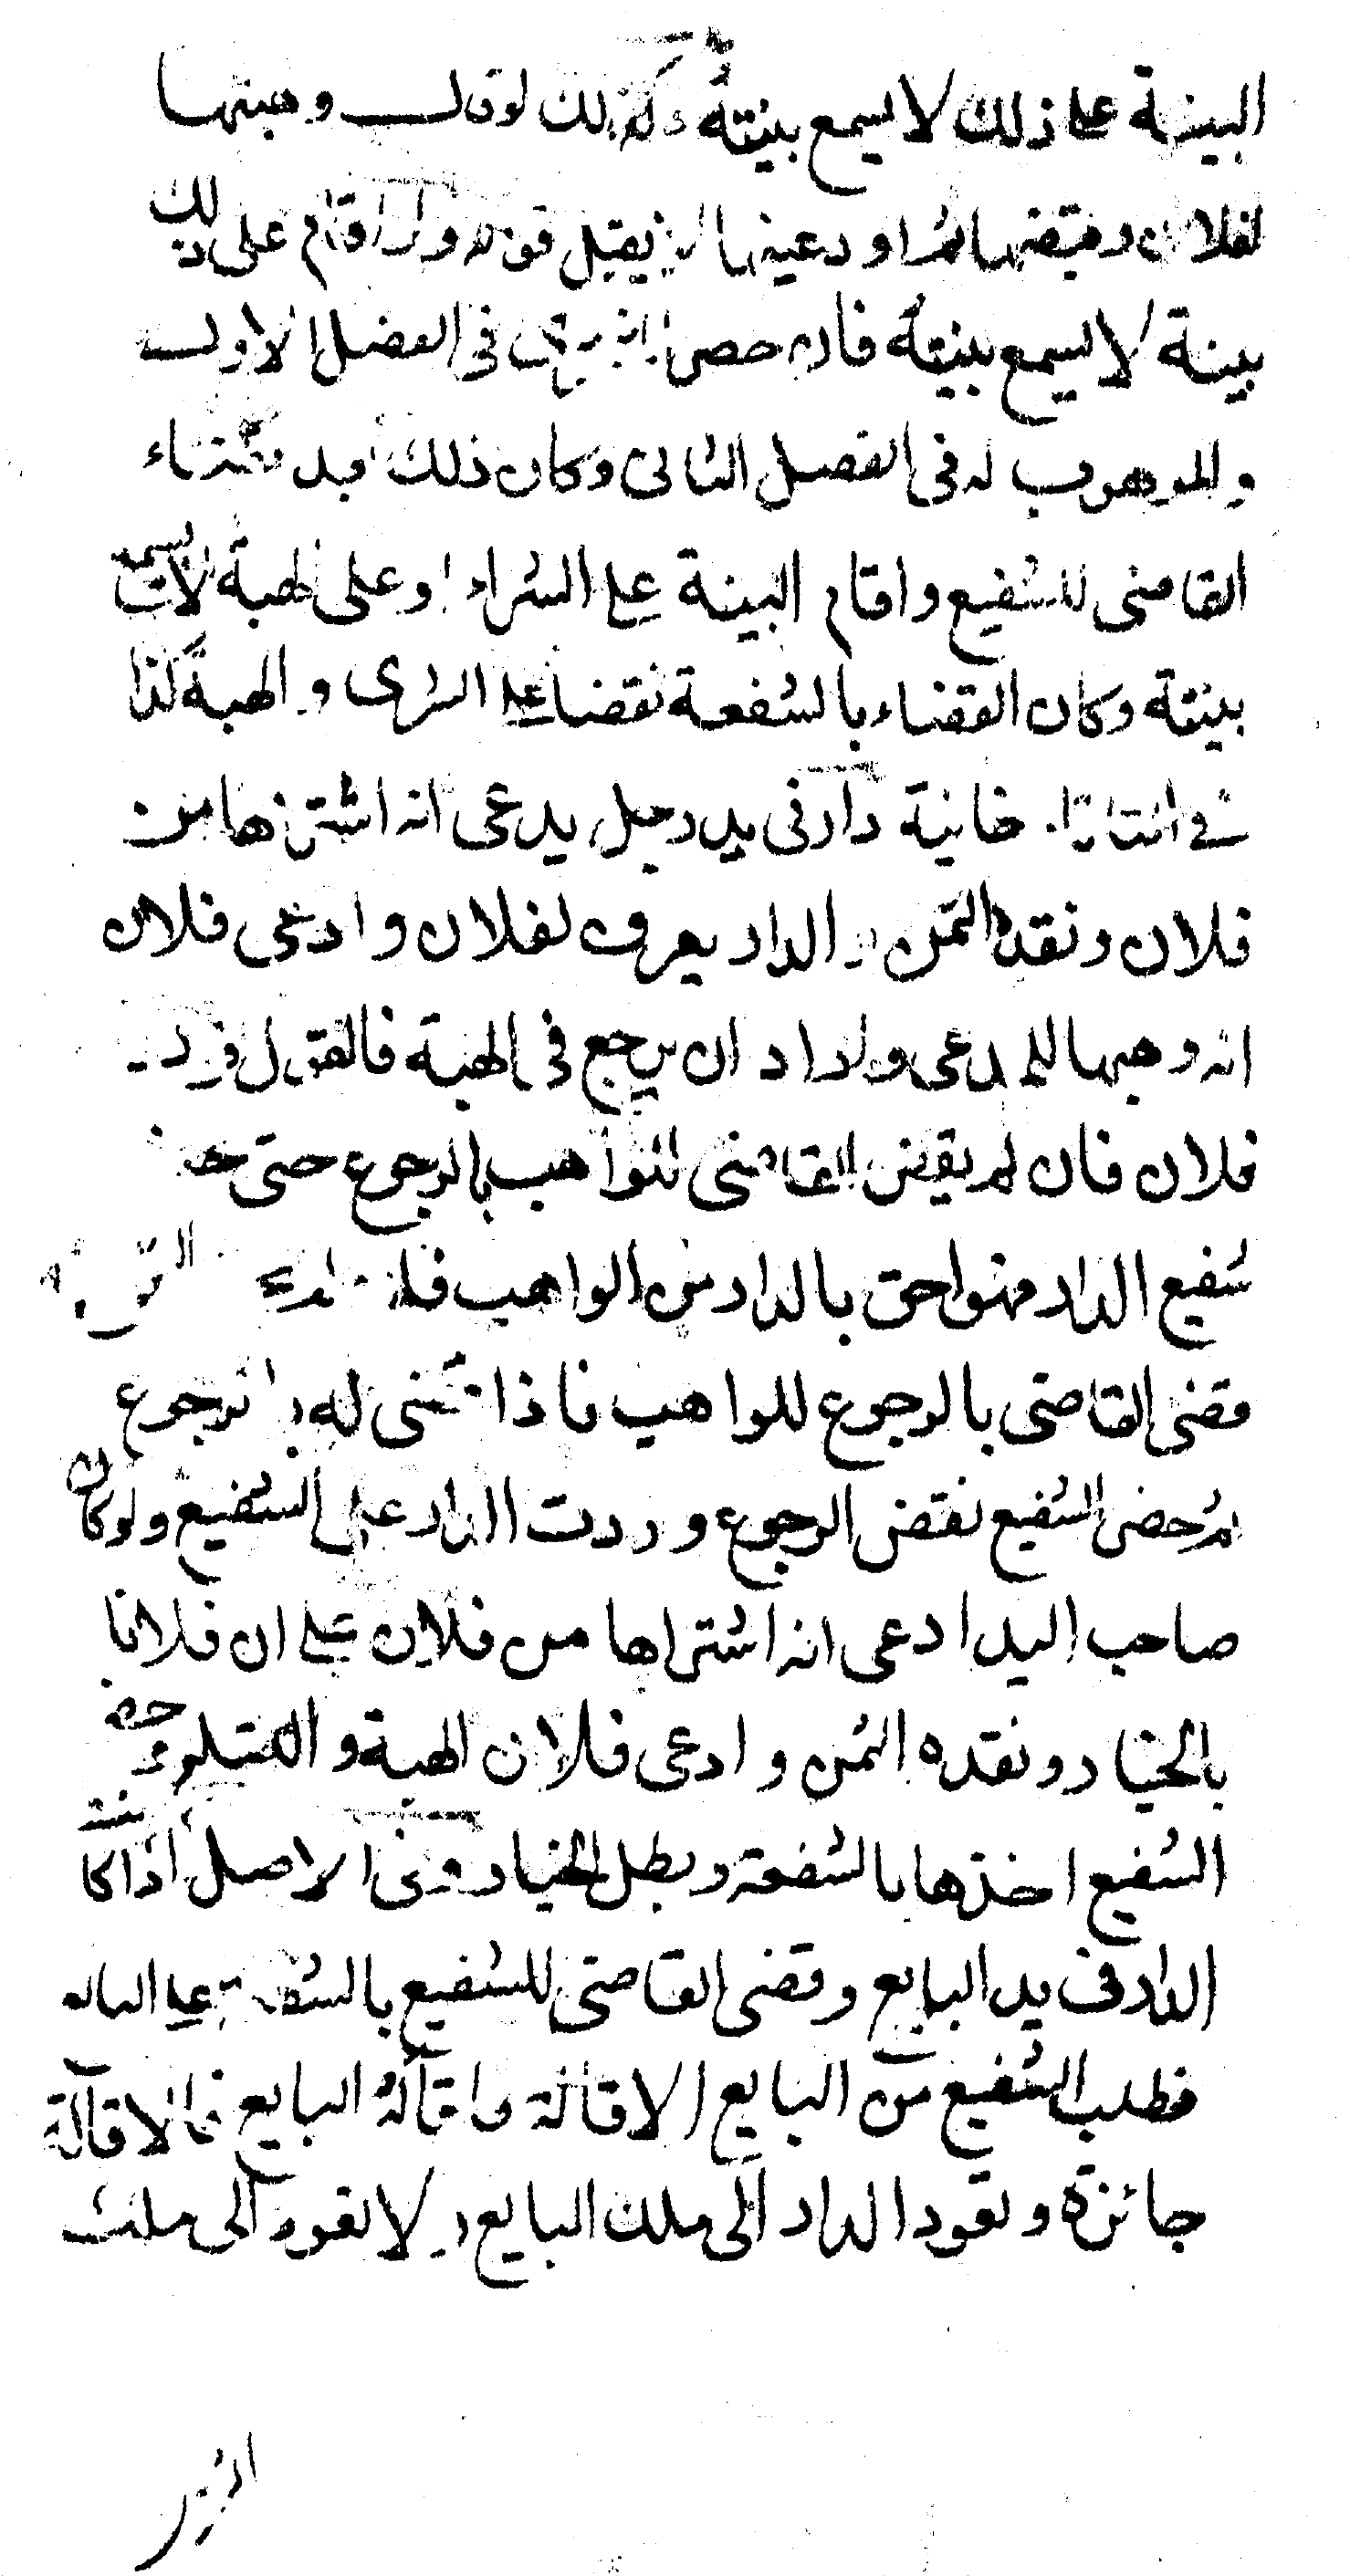 البينة على ذلك لا يسمع بينته وكذلك لو قال وهبتها
لفلان وقبضها ثم اودعنيها لا يقبل قوله ولو اقام على ذلك
بينة لا يسمع بينته فان حضر المشترى فى الفصل الاول
والموهوب له فى الفصل الثانى وكان ذلك قبل قضاء
القاضى للشفيع واقام البينة على الشراء او على الهبة لا يسمع
بينته وكان القضاء بالشفعة نقضا على الشرى والهبة كذا
فى خانية دار فى يد رجل يدعى انه اشترىها من
فلان ونقده الثمن والدار يعرف لفلان وادعى فلان
انه وهبها للمدعى واراد ان يرجع فى الهبة فالقول قول
فلان فان لم يقض القاضى للواهب بالرجوع حتى حضر
شفيع الدار فهو احق بالدار من الواهب فان
قضى القاضى بالرجوع للواهب فاذا قضى له بالرجوع
ثم حضر الشفيع نقض الرجوع وردت الدار على الشفيع ولو كان
صاحب اليد ادعى انه اشتراها من فلان على ان فلانا
بالخيار ونقده الثمن وادعى فلان الهبة والتسليم حضر
الشفيع اخذها بالشفعة وبطل الخيار وفى الاصل اذا كانت
الدار فى يد البايع وقضى القاضى للشفيع بالشفعة على البايع
فطلب الشفيع من البايع الاقالة واقاله البايع فالاقالة
جائزة وتعود الدار الى ملك البايع ولا تعود الى ملك